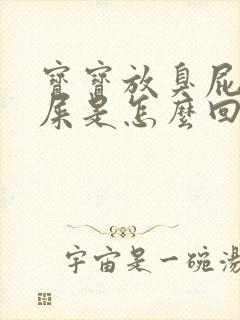 寶寶放臭屁
屎是怎麼回
宇宙是一碗湯